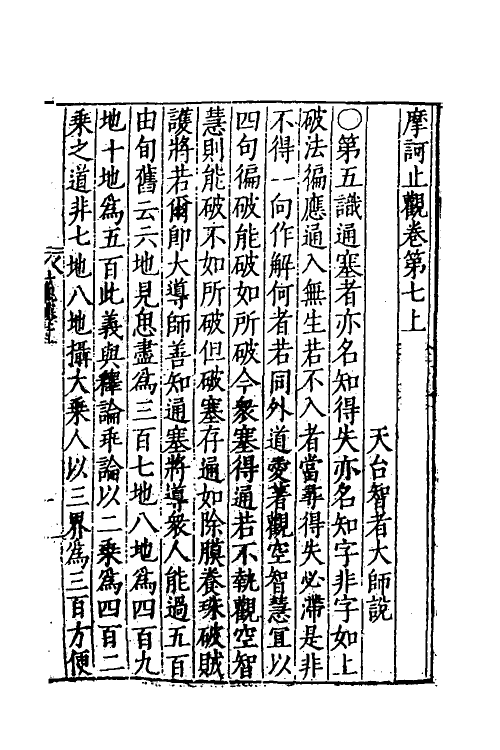 摩訶止觀卷第七上
天台智者大師說
○第五識通塞者亦名知得失亦名知字非字如上
破法徧應通入無生若不入者當尋得失必滯是非
不得一向作解何者若同外道愛著觀空智慧宜以
四句徧破能破如所破令衆塞得通若不執觀空智
慧則能破不如所破但破塞存通如除膜養珠破賊
護將若爾即大導師善知通塞將導衆人能過五百
由旬舊云六地見思盡爲三百七地八地爲四百九
地十地爲五百此義與釋論乖論以二乘爲四百二
乘之道非七地八地攝大乘人以三界爲三百方便